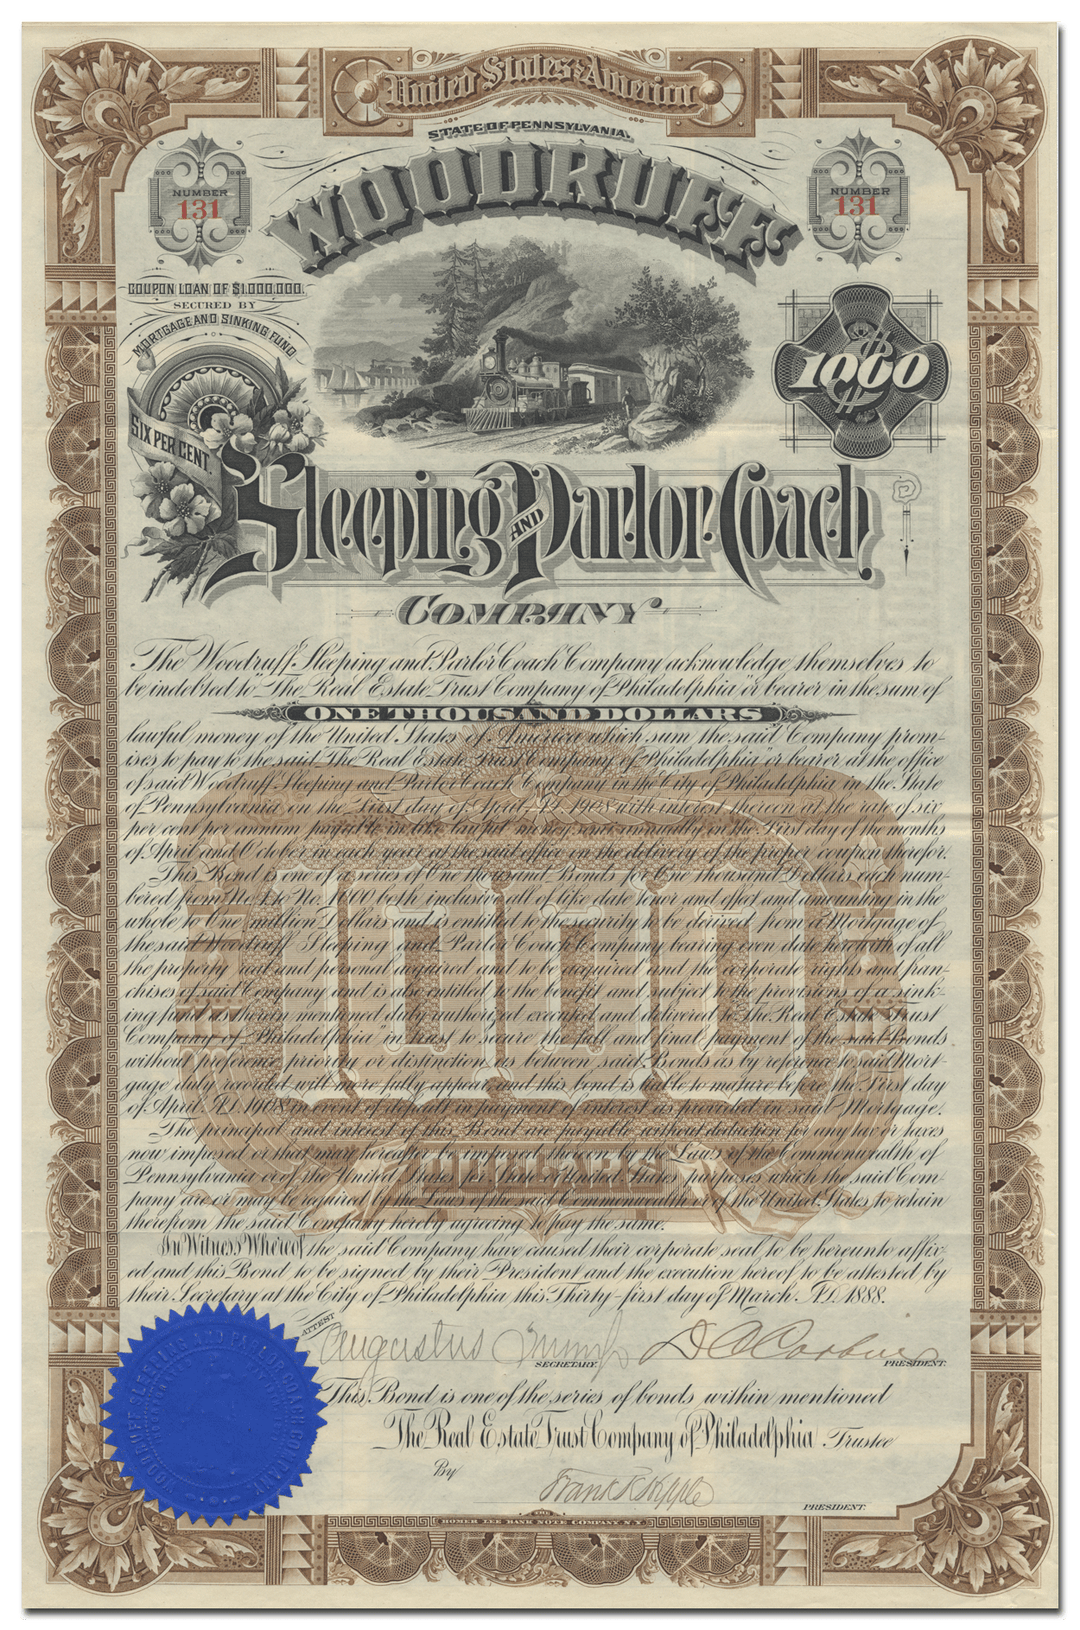 United States of America
STATE OF PENNSYLVANIA.
WOODRUFF
NUMBER
131
NUMBER
131
COUPON LOAN OF $1,000,000.
SECURED BY
MORTGAGE AND SINKING FUND
SIX PER CENT.
1000
Sleeping AND Parlor Coach
COMPANY
The Woodruff Sleeping and Parlor Coach Company acknowledge themselves to
be indebted to "The Real Estate Trust Company of Philadelphia" or bearer in the sum of
ONE THOUSAND DOLLARS
lawful money of the United States of America which sum the said Company prom-
ises to pay to the said "The Real Estate Trust Company of Philadelphia" or bearer at the office
of said Woodruff Sleeping and Parlor Coach Company in the City of Philadelphia in the State
of Pennsylvania on the First day of April A.D. 1908 with interest thereon at the rate of six
per cent per annum payable in like lawful money semi annually on the First day of the months
of April and October in each year at the said office on the delivery of the proper coupon therefor.
This Bond is one of a series of One thousand Bonds for One thousand Dollars each num-
bered from No. 1 to No. 1000 both inclusive all of like date tenor and effect and amounting in the
whole to One million Dollars and is entitled to the security to be derived from a Mortgage of
the said Woodruff Sleeping and Parlor Coach Company bearing even date herewith of all
the property real and personal acquired and to be acquired and the corporate rights and fran-
chises of said Company and is also entitled to the benefit and subject to the provisions of a sink-
ing fund as therein mentioned duly authorized executed and delivered to "the Real Estate Trust
Company of Philadelphia" in trust to secure the full and final payment of the said Bonds
without preference priority or distinction as between said Bonds as by reference to said Mort-
gage duly recorded will more fully appear and this bond is liable to mature before the First day
of April A.D. 1908 in event of default in payment of interest as provided in said Mortgage.
The principal and interest of this Bond are payable without deduction for any tax or taxes
now imposed or that may hereafter be imposed thereon by the Laws of the Commonwealth of
Pennsylvania or of the United States for State or United States purposes which the said Com-
pany are or may be required by the Laws of the said Commonwealth or of the United States to retain
therefrom the said Company hereby agreeing to pay the same.
In Witness Whereof the said Company have caused their corporate seal to be hereunto affix-
ed and this Bond to be signed by their President and the execution hereof to be attested by
their Secretary at the City of Philadelphia this Thirty-first day of March A.D. 1888.
1000
DOLLARS
ATTEST
Augustus
SECRETARY.
PRESIDENT.
This Bond is one of the series of bonds within mentioned
The Real Estate Trust Company of Philadelphia Trustee
By
Frank K. Hipple
PRESIDENT.
WOODRUFF SLEEPING AND PARLOR COACH COMPANY
THE
HOMER LEE BANK NOTE COMPANY, N.Y.